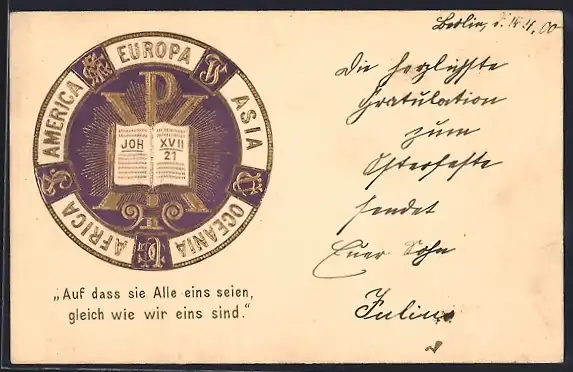 EUROPA
ASIA
OCEANIA
AFRICA
AMERICA
JOH XVII
21
„Auf dass sie Alle eins seien,
gleich wie wir eins sind.“
Berlin, d. 14.4.00
Die herzlichste
Gratulation
zum
Osterfeste
sendet
Euer Sohn
Julius